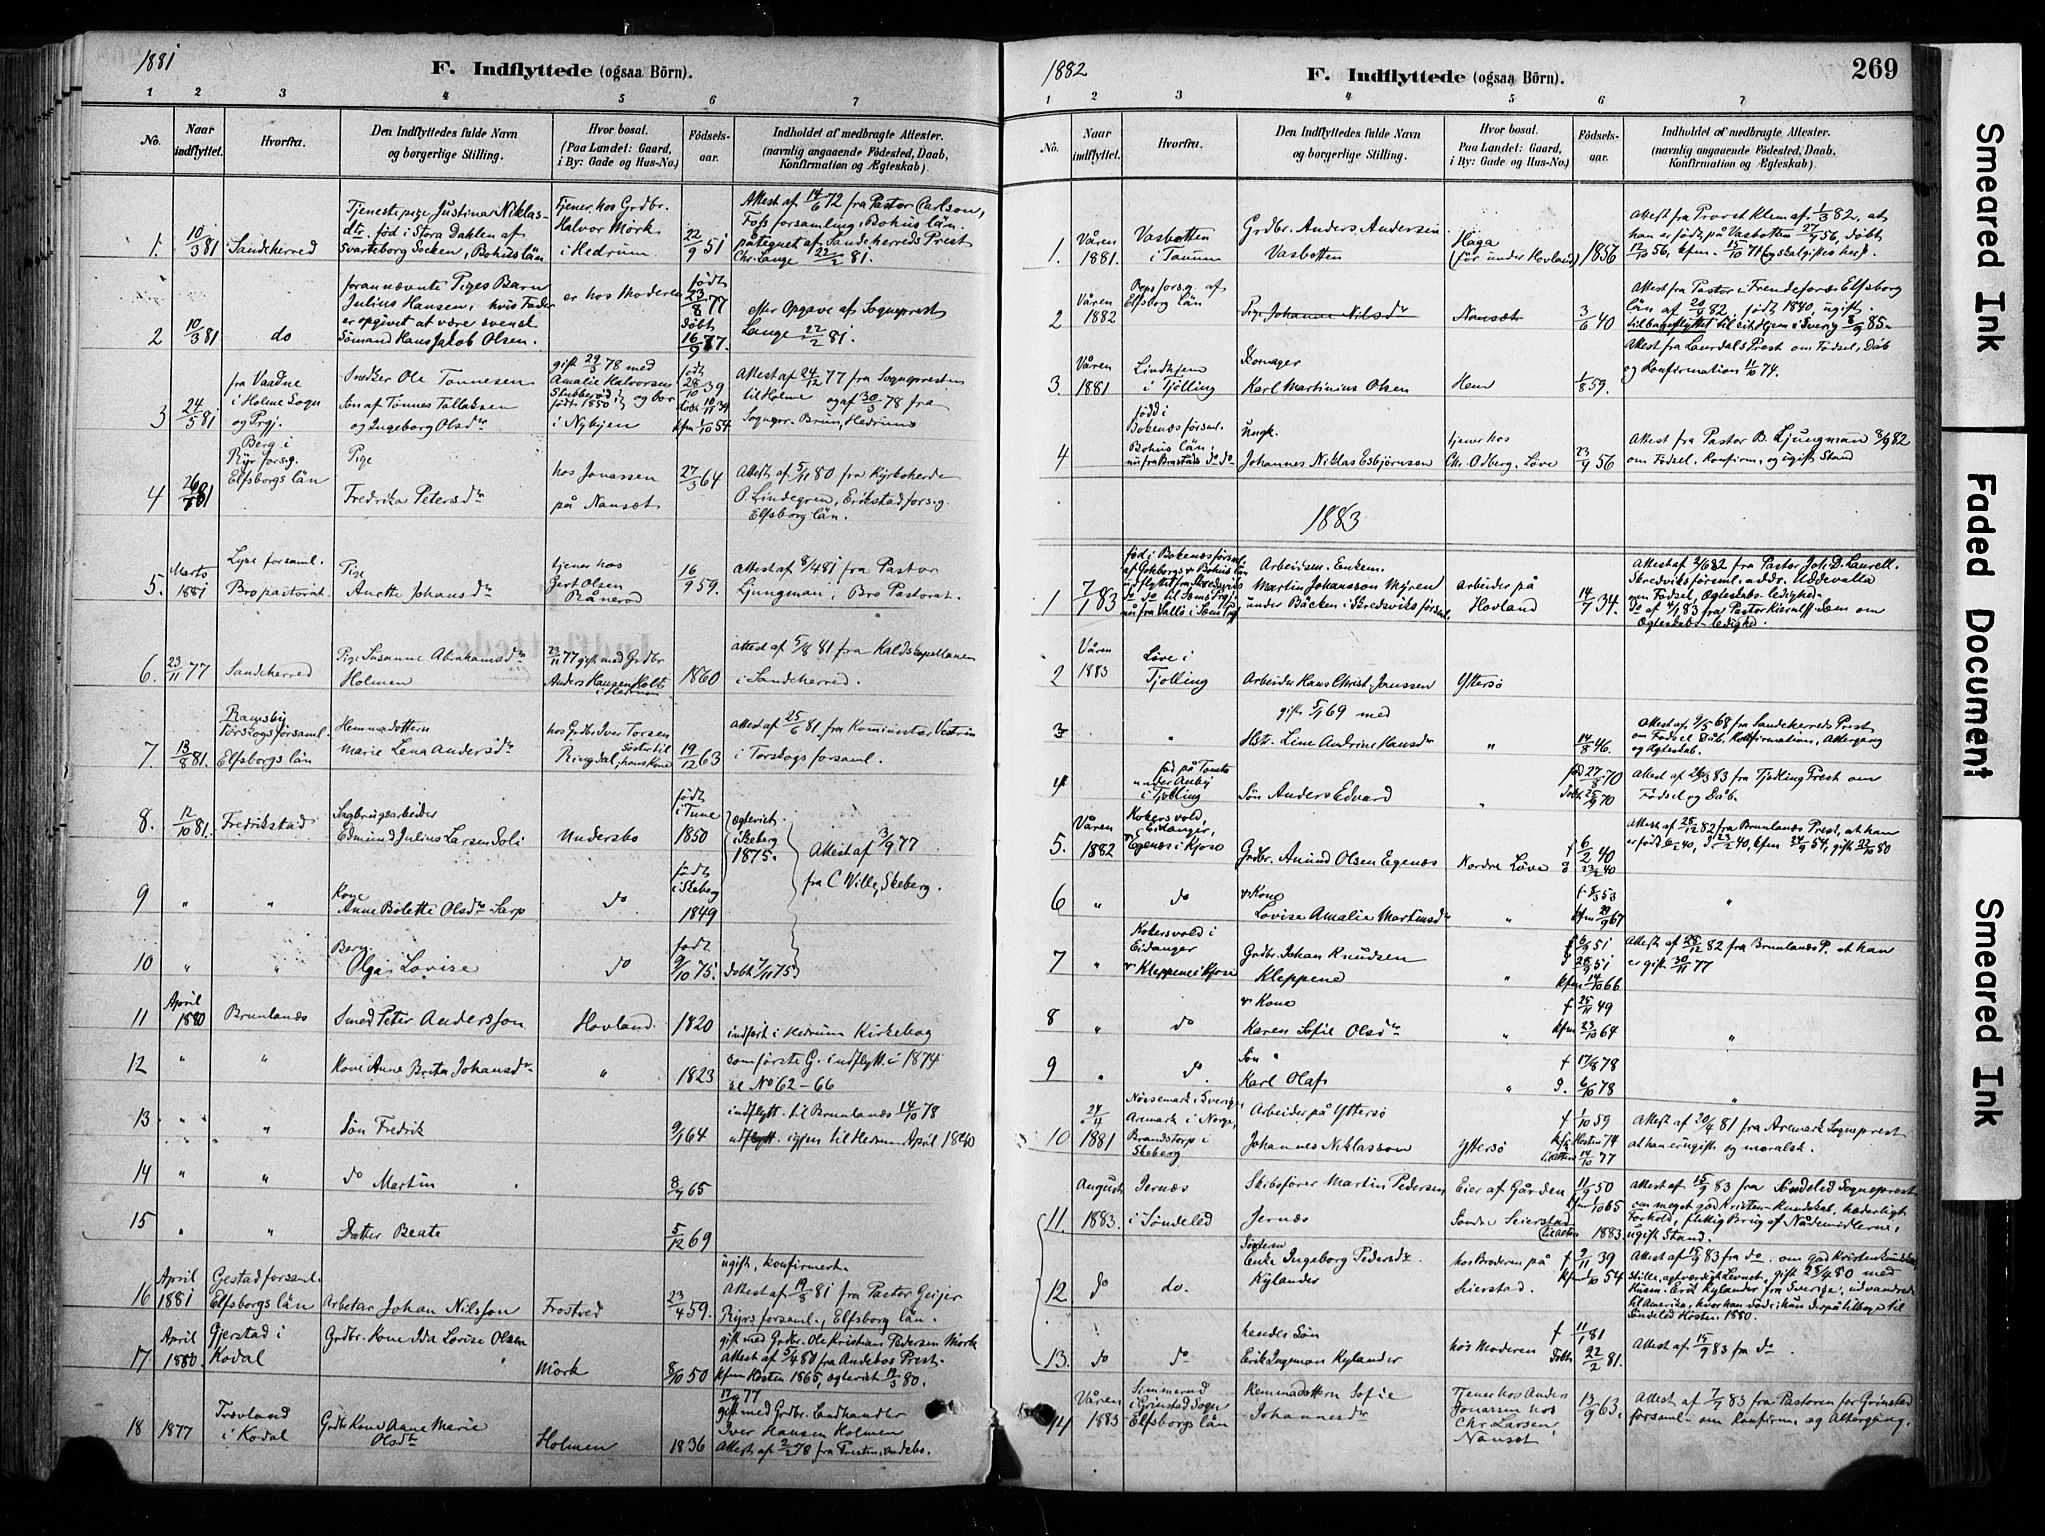 1881
F. Indflyttede (ogsaa Börn).
1 2 3 4 5 6 7
No.
Naar indflyttet.
Hvorfra.
Den Indflyttedes fulde Navn
og borgerlige Stilling.
Hvor bosat.
(Paa Landet: Gaard,
i By: Gade og Hus-No.)
Fødsels-
aar.
Indholdet af medbragte Attester.
(navnlig angaaende Fødested, Daab,
Konfirmation og Ægteskab)
1. 10/3 81 Sandeherred
Tjenestepige Justina Niklas-
dtr. fød i Stora Dahlen af
Svarteborg Socken, Bohuslän
Tjener hos Grdbr.
Halvor Mörk
i Hedrum
22/9 51
Attest af 14/6 72 fra Pastor Carlson,
Foss forsamling, Bohus län.
påtegnet af Sandeherreds Prest
Chr. Lange 22/2 81.
2 10/3 81 do
forannævnte Piges Barn
Julius Hansen, hvis Fader
er opgivet at være svensk
Sömand Hans Jakob Olsen.
er hos Moderen
født
23/8 77
döbt
16/9 77.
efter Opgave af Sogneprest
Lange 22/2 81.
3 24/5 81
fra Vaadne
i Holme Sogn
og Prgj.
Snedker Ole Tönnesen
Son af Tönnes Tollaksen
og Ingeborg Olsdtr
gift 29/3 78 med
Amalie Halvorsen
født 1850 og bor
i Nybjen
født
28/10 39
döbt 10/11 39
kfm 1/10 54
Attest af 24/12 77 fra Sognepresten
til Holme og af 30/3 78 fra
Sognepr. Brun, Hedrum
4 26/7 81
Berg i
Ryr forsg.
Elfsborgs län
Pige
Fredrika Petersdtr
hos Jonassen
på Nanset
27/3 64
Attest af 5/11 80 fra Kyrkoherde
O. Lindegren, Erikstad forsg.
Elfsborg län.
5. Marts
1881
Lyse forsaml.
Bro pastorat
Pige
Anette Johansdtr
tjener hos
Gert Olsen
Rånerød
16/9 59.
Attest af 8/4 81 fra Pastor
Ljungman i Bro Pastorat.
6. 23/11 77 Sandeherred
Pige Susanne Abrahamsdtr
Holmen
23/11 77 gift med Grdbr
Anders Hansen Holt
i Hedrum
1860
Attest af 5/8 81 fra Kaldskapellanen
i Sandeherred.
7. 13/8 81.
Ramsby
Torskogs forsaml.
Elfsborgs län
Hemmadottern
Marie Lena Andersdtr
hos Grdbr Iver Torsen
Ringdal, Söster til hans Kone
19/12 63
Attest af 25/6 81 fra Kominister Vestrin
i Torskogs forsaml.
8. 12/10 81. Fredrikstad
Sagbrugsarbeider
Edmund Julius Larsen Soli
Undersbo
født
i Tune
1850
ægteviet
i Skeberg
1875.
Attest af 3/9 77
fra C Wille, Skeberg.
9 " "
Kone
Anne Bolette Olsdtr Sarp
do
født
i Skeberg
1849
10 " "
Barn
Olga Lovise
do
født
9/10 75.
døbt 7/11 75
11 April
1880 Brunlanæs
Smed Peter Andersson
Hovland. 1820
indført i Hedrum Kirkebog
12 " "
Kone Anne Brita Johansdtr
" 1823
som første G. indflytt. i 1874
se No 62-66
13 " " Søn Fredrik 9/1 64
indflytt. til Brunlanæs 14/10 78
udflytt igjen til Hedrum April 1880
14 " " do Martin 8/9 65
15 " " Datter Beate 5/12 69
16 April
1881
Gestad forsaml.
Elfsborgs län
Arbetar Johan Nilsson
Frostvet
23/4 59.
ugift, konfirmert
Attest af 19/8 81 fra Pastor Geijer
Ryrs forsaml., Elfsborg län.
17 April
1880
Gjerstad i
Kodal
Grdbr. Kone Ida Lovise Olsen
Mörk
8/10 50
gift med Grdbr. Ole Kristian Pedersen Mörk
Attest af 5/4 80 fra Andebos Prest.
kfm Høsten 1865, ægteviet 19/3 80.
18 1877
Trevland
i Kodal
Grdbr Kone Anne Marie
Olsdtr
Holmen 1836
17/7 77
gift med Grdbr. Landhandler
Iver Hansen Holmen
Attest af 2/2 78 fra Presten Andebo.
1882
F. Indflyttede (ogsaa Börn).
269
1 2 3 4 5 6 7
No.
Naar
indflyttet.
Hvorfra.
Den Indflyttedes fulde Navn
og borgerlige Stilling.
Hvor bosat.
(Paa Landet: Gaard,
i By: Gade og Hus-No.)
Fødsels-
aar.
Indholdet af medbragte Attester.
(navnlig angaaende Fødested, Daab,
Konfirmation og Ægteskab)
1. Våren
1881.
Vasbotten
i Tanum
Grdbr. Anders Andersen
Vasbotten
Haga
(før under Hovland)
1856
Attest fra Provst Klem af 1/3 82, at
han er født på Vasbotten 27/9 56, døbt
12/10 56, kfm. 15/10 71 (og skal giftes her).
2 Våren
1882
forsg. af
Elfsborg län
Pige Johanna Nilsdtr
Nanset
3/6 40
Attest fra Pastor i Frendefors Elfsborg
län af 20/4 82, født 1840, ugift.
tilbageflyttet til sit Hjem i Sverig 8/9 85.
3. Våren
1881
Lindhjem
i Tjölling
Skomager
Karl Martinius Olsen
Hem
1/8 59.
Attest fra Laurdals Prest om Födsel, Dåb
og Konfirmation 11/10 74.
4
född i
Bokenäs försml.
Bohus län,
nu fra Brastads do do
Ungk.
Johannes Niklas Esbjörnsen
tjener hos
Chr. Odberg, Löve
23/4 56
Attest fra Pastor B. Ljungman 8/9 82
om Fødsel, Konfirm. og ugift Stand
1883
1 7/1 83
fød i Bokenäs försml.
af Gökbergs v Bohus län
udflyttet fra Skredsviks
do do til Sems Prgj.
nu fra Vallö i Sems Prgj
Arbeidsm. Enkem.
Martin Johansson Myren
under Bäcken i Skredsviks försml.
Arbeider på
Hovland
14/7 34.
Attest 2/6 82 fra Pastor Joh. D. Laurell
Skredviks försml. addr. Uddevalla
om Fødsel, Ægteskabs-ledighed.
do af 4/1 83 fra Pastor Kierulf Sem om
Ægteskabs-ledighed.
2 Våren
1883
Löve i
Tjölling
Arbeider Hans Christ. Janssen
Yttersø
gift 5/1 69 med
3 "
Hst. Line Andrine Hansdtr
" 14/8 46.
Attest af 4/5 68 fra Sandeherreds Prest
om Fødsel, Dåb, Konfirmation, Altergang
og Ægteskab.
4
fød på Tomta
under Auby
i Tjölling
Søn Anders Edvard
"
fød 27/8 70
Døbt 25/9 70
Attest af 26/3 83 fra Tjølling Prest om
Fødsel og Dåb.
5. Våren
1882
Kokersvold,
Eidanger,
Egenæs i Kjose
Grdbr. Amund Olsen Egenæs
Nordre Löve
f 6/2 40
d 23/2 40
Attest af 28/12 82 fra Brunlanæs Prest, at han
er född 6/2 40, d. 23/2 40, kfm 24/9 54, gift 23/10 80
6 " do
v Kone
Lovise Amalie Martinsdtr
"
f. 8/3 53
kfm 29/9 67
"
7 "
Kokersvold i
Eidanger
v Kleppene i Kjose
Grdbr. Johan Knudsen
Kleppene
"
f 6/9 51
d 28/9 51
kfm 14/10 66
Attest af 28/12 82 fra Brunlanæs P. at han
er gift 30/11 77
8 " do
v Kone
Karen Sofie Olsdtr
"
f 25/11 49
kfm 23/10 64
"
9 " do.
Søn
Karl Olaf
"
f 17/8 78
d. 6/10 78
"
10 24/4
1881
Nössemark i Sverige,
Aremark i Norge,
Brandstorp i
Skeberg
Arbeider på Yttersø
Johannes Niklasson
Yttersø
f 1/10 59
kfm Høsten 74
14/10 77
Attest af 20/4 81 fra Aremark Sogneprest
at han er ugift og moralsk.
11 August
1883.
Jernæs
i Søndeled
Skibsfører Martin Pedersen
Jernæs
Eier af Gården
Søndre Seierstad
11/9 50
kfm 1/10 65
1883
Attest af 15/9 83 fra Søndeled Sogneprest
om meget god Kristen-Kundskab, hæderligt
Forhold, flittig Brug af Nådemidlerne,
ugift Stand.
12 do do.
Søsteren
Enke Ingeborg Pedersdtr
Kylander
hos Broderen på
Seierstad.
f 9/11 39
kfm 1/10 54
Attest af 15/9 83 fra do. om god Kristenkundskab
stille, agtværdigt Levnet, gift 28/4 80 med
Husm. Erik Kylander fra Sverige, udvandrede
til Amerika, hvorhan døde; hun derpå tilbage til
Søndeled Høsten 1880.
13. do do
hendes Søn
Erik Ingeman Kylander
hos Moderen
f 11/1 81
Døbt 22/2 81.
Attest af 15/9 83 fra do.
14 Våren
1883
Simmerud
i Grinstad Sogn
Elfsborgs län
Hemmadottern Sofie
Johannesdtr
Tjener hos Anders
Jonassen hos
Chr. Larsen,
Nanset
13/9 63.
Attest af 7/9 83 fra Pastoren for Grinstad
forsaml. om Konfirm. og Altergang.
Smeared Ink
Faded Document
Smeared Ink